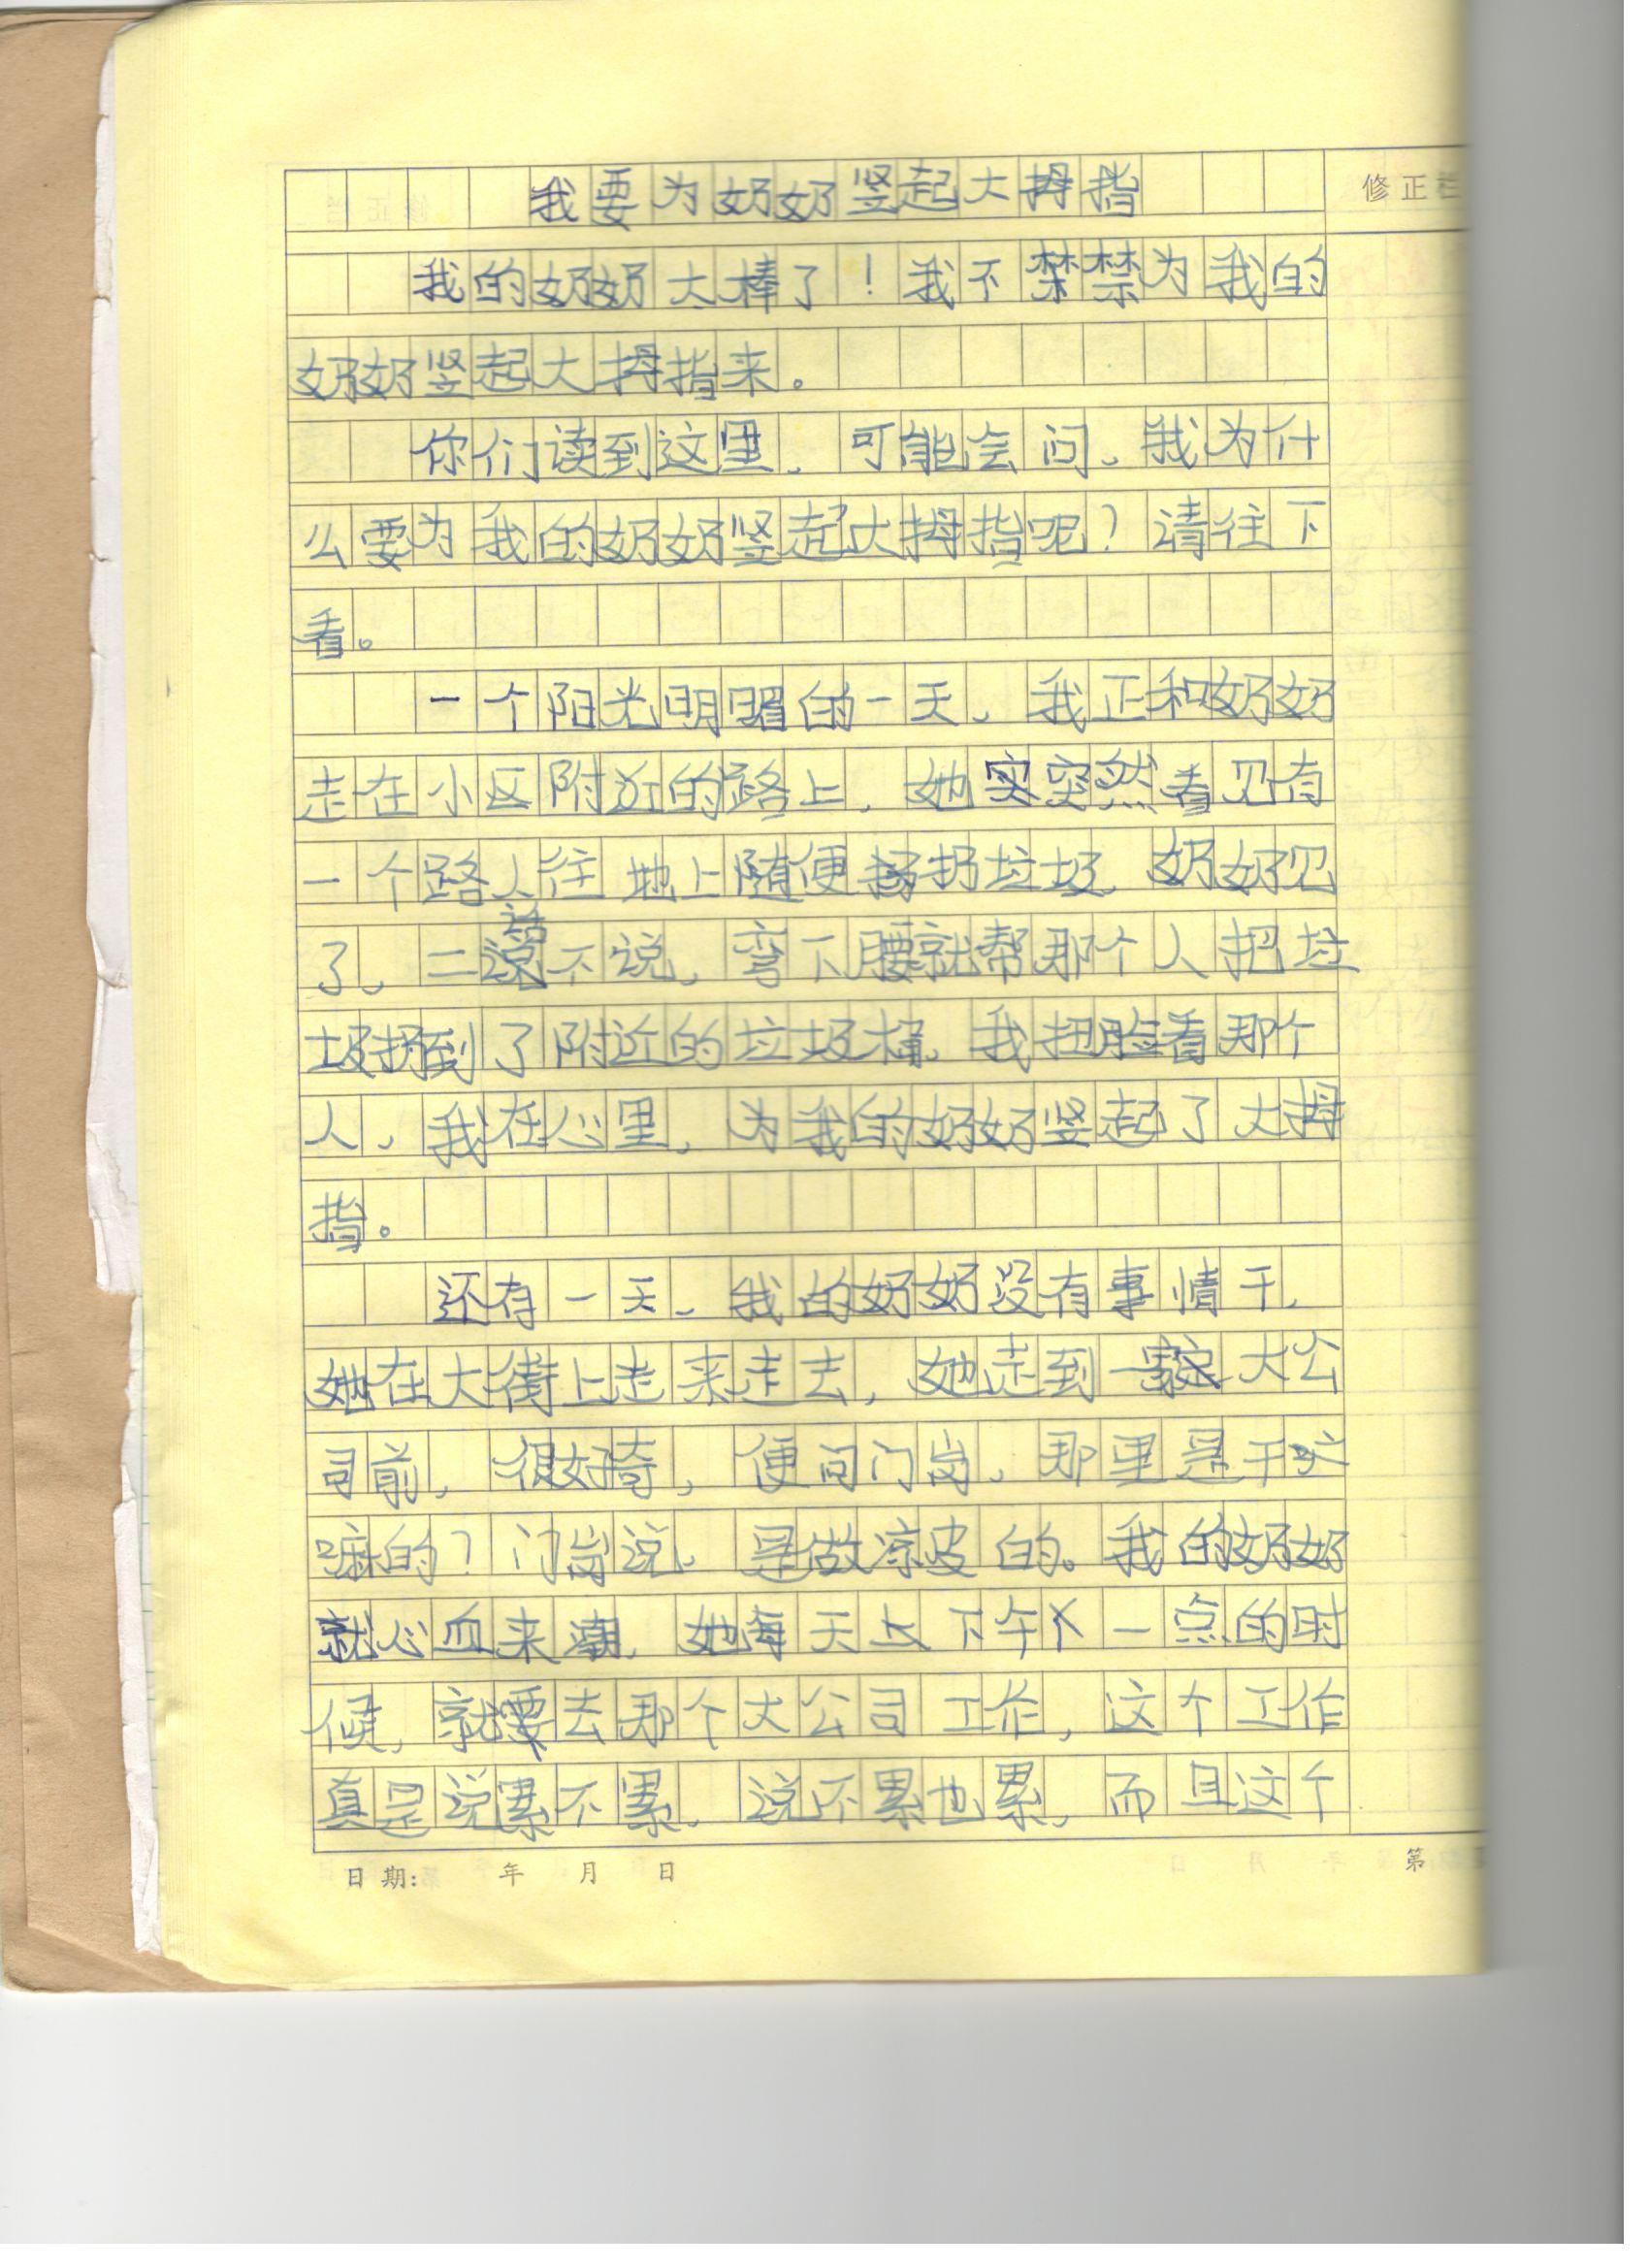 我要为奶奶竖起大拇指
修正栏
我的奶奶太棒了！我不禁禁为我的
奶奶竖起大拇指来。
你们读到这里，可能会问，我为什
么要为我的奶奶竖起大拇指呢？请往下
看。
一个阳光明媚的一天，我正和奶奶
走在小区附近的路上，她突然看见有
一个路人往地上随便扔垃圾，奶奶见
了，二话不说，弯下腰就帮那个人把垃
圾扔到了附近的垃圾桶，我扭脸看那个
人，我在心里，为我的奶奶竖起了大拇
指。
还有一天，我的奶奶没有事情干，
她在大街上走来走去，她走到一家大公
司前，很好奇，便问门岗，那里是干
嘛的？门岗说，是做凉皮的。我的奶奶
就心血来潮，她每天下午一点的时
候，就要去那个大公司工作，这个工作
真是说累不累，说不累也累，而且这个
日期： 年 月 日
第